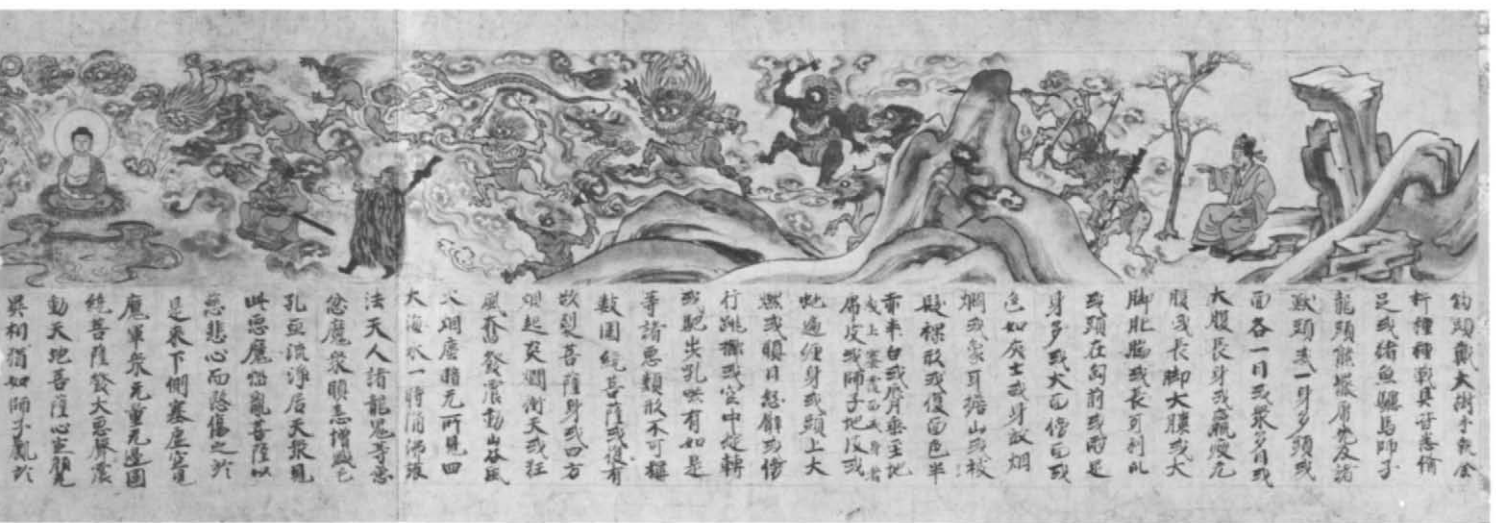 鉤頭戟大樹手執金
杵種種戰具皆悉備
足或猪魚驢馬師子
龍頭熊羆虎兕及諸
獸頭或一身多頭或
面各一目或衆多目或
大腹長身或羸瘦无
腹或長脚大膝或大
脚肥𨄔或長爪利牙
或頭在匈前或兩足
身多或大面傍面或
色如灰土或身放烟
焰或象耳擔山或被
髮裸形或復面色半
赤半白或脣垂至地
或上褰覆面或身著
虎皮或師子蛇皮或
蛇遍纏身或頭上火
燃或瞋目怒臂或傍
行跳擲或空中旋轉
或馳步吼㗲有如是
等諸惡類形不可稱
數圍繞菩薩或復有
欲裂菩薩身或四方
烟起炎爓衝天或狂
風奮發震動山谷風
火烟塵暗无所見四
大海水一時涌沸護
法天人諸龍鬼等悉
忿魔衆瞋恚增盛毛
孔血流淨居天衆見
此惡魔惱亂菩薩以
慈悲心而愍傷之於
是來下側塞虛空見
魔軍衆无量无邊圍
繞菩薩發大惡聲震
動天地菩薩心定顏
異相猶如師子處於